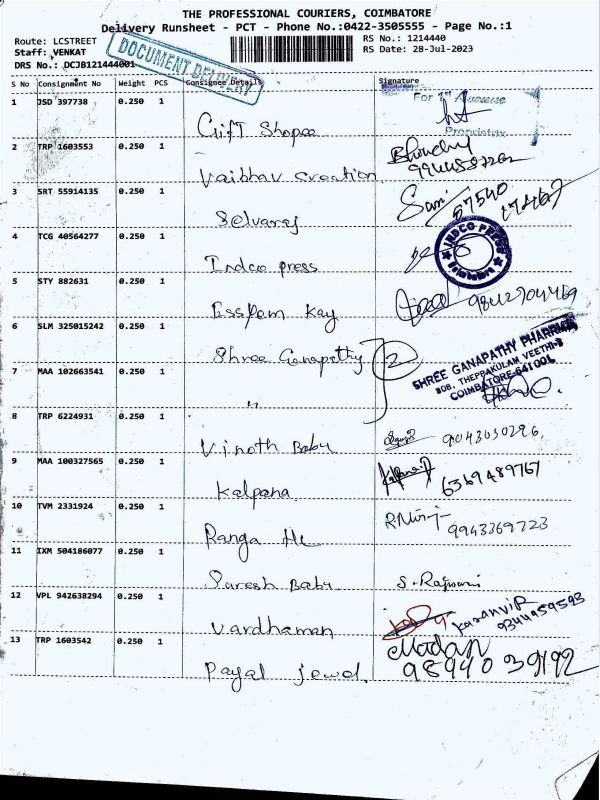 THE PROFESSIONAL COURIERS, COIMBATORE
Delivery Runsheet - PCT - Phone No.:0422-3505555 - Page No.:1
Route: LCSTREET
RS No.: 1214440
Staff: VENKAT
RS Date: 28-Jul-2023
DRS No.: DCJB121444001
DOCUMENT DELIVERY
S No Consignment No Weight PCS Consignee Details Signature
1 JSD 397738 0.250 1
For 1st Avenue
Gift Shopee
Proprietrix
2 TRP 1603553 0.250 1
Vaibhav creation
3 SRT 55914135 0.250 1
Selvaraj
Sam 57540 17467
4 TCG 40564277 0.250 1
Indco press
INDCO PRESS
Coimbatore
5 STY 882631 0.250 1
Esspem Kay
9842704469
6 SLM 325015242 0.250 1
Shree Ganapathy 2
SHREE GANAPATHY PHARMA
808, THEPPAKULAM VEETHI-3
COIMBATORE-641001.
7 MAA 102663541 0.250 1
"
8 TRP 6224931 0.250 1
Vinoth Babu
9043030296
9 MAA 100327565 0.250 1
Kalpana
6369489767
10 TVM 2331924 0.250 1
Ranga
9943369723
11 IXM 504186077 0.250 1
Suresh Babu
S. Rajwani
12 VPL 942638294 0.250 1
Vardhaman
Karanvir
9344959593
13 TRP 1603542 0.250 1
Payal jewel.
Madan
9894039192